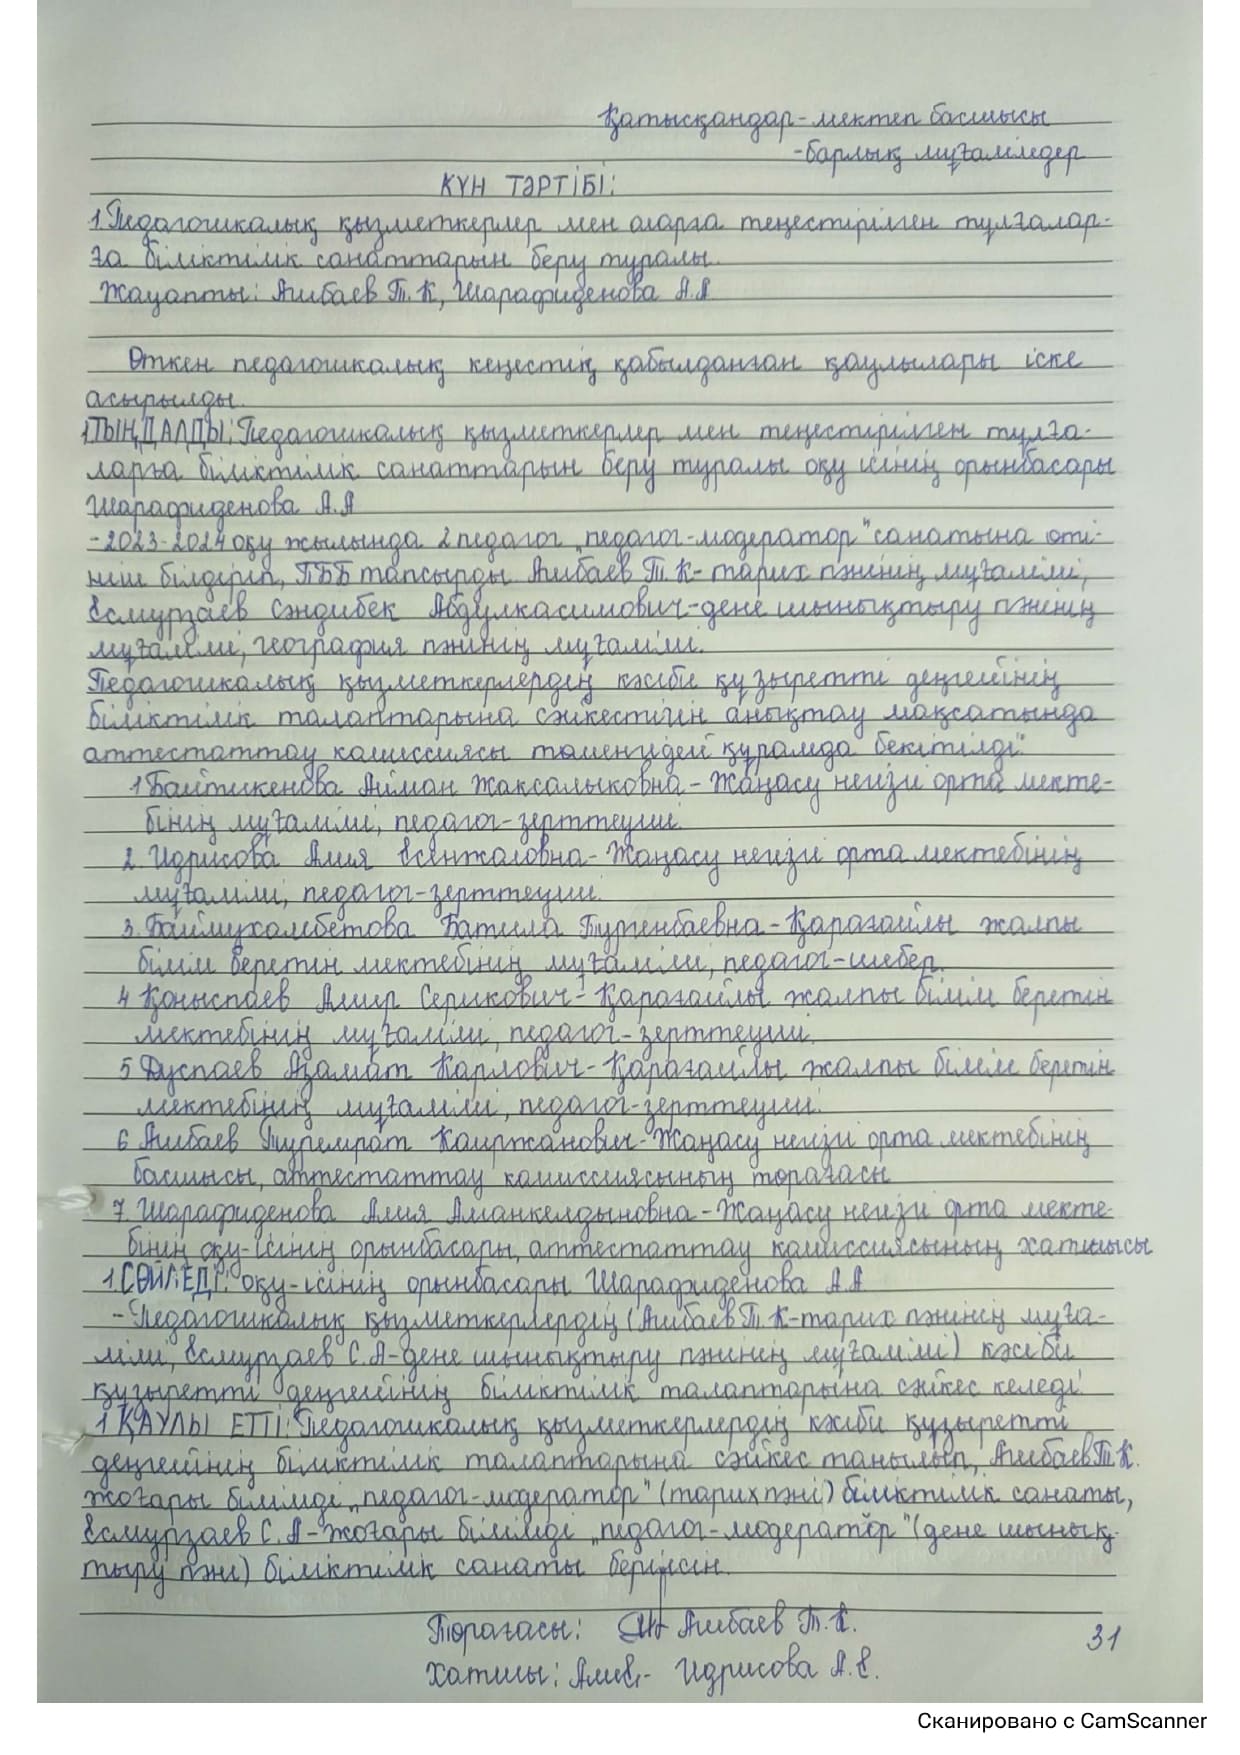 Қатысқандар - мектеп басшысы
-барлық мұғалімдер
КҮН ТӘРТІБІ:
1.Педагогикалық қызметкерлер мен оларға теңестірілген тұлғалар-
ға біліктілік санаттарын беру туралы.
Жауапты: Ашбаев Т.К, Шарафиденова А.А
Өткен педагогикалық кеңестің қабылданған қаулылары іске
асырылды.
1ТЫҢДАЛДЫ: Педагогикалық қызметкерлер мен теңестірілген тұлға-
ларға біліктілік санаттарын беру туралы оқу ісінің орынбасары
Шарафиденова А.А
-2023-2024 оқу жылында 2 педагог „педагог-модератор" санатына өті-
ніш білдіріп, ПББ тапсырды Ашбаев Т.К- тарих пәнінің мұғалімі,
Есмурзаев Сәндибек Абдулкасимович-дене шынықтыру пәнінің
мұғалімі, география пәнінің мұғалімі.
Педагогикалық қызметкерлердің кәсіби құзыретті деңгейінің
біліктілік талаптарына сәйкестігін анықтау мақсатында
аттестаттау комиссиясы төмендегідей құрамда бекітілді:
1 Байтикенова Айман Жаксалыковна - Жаңасу негізгі орта мекте-
бінің мұғалімі, педагог-зерттеуші.
2. Идрисова Алия Есенжоловна - Жаңасу негізгі орта мектебінің
мұғалімі, педагог-зерттеуші.
3. Баймухамбетова Батила Тургенбаевна - Қарағайлы жалпы
білім беретін мектебінің мұғалімі, педагог-шебер.
4 Қоныспаев Амир Серикович - Қарағайлы жалпы білім беретін
мектебінің мұғалімі, педагог-зерттеуші.
5 Дуспаев Азамат Карлович - Қарағайлы жалпы білім беретін
мектебінің мұғалімі, педагог-зерттеуші.
6 Ашбаев Каиржанович - Жаңасу негізгі орта мектебінің
басшысы, аттестаттау комиссиясының төрағасы
7. Шарафиденова Алия Аманкелдыновна - Жаңасу негізгі орта мекте-
бінің оқу-ісінің орынбасары, аттестаттау комиссиясының хатшысы
1.СӨЙЛЕДІ: оқу-ісінің орынбасары Шарафиденова А.А
- Педагогикалық қызметкерлердің (Ашбаев Т.К-тарих пәнінің мұға-
лімі, Есмурзаев С.А-дене шынықтыру пәнінің мұғалімі) кәсіби
құзыретті деңгейінің біліктілік талаптарына сәйкес келеді.
1 ҚАУЛЫ ЕТТІ: Педагогикалық қызметкерлердің кәсіби құзыретті
деңгейінің біліктілік талаптарына сәйкес танылып, Ашбаев Т.К.
жоғары білімді „педагог-модератор" (тарих пәні) біліктілік санаты,
Есмурзаев С.А-жоғары білімді „педагог-модератор" (дене шынық-
тыру пәні) біліктілік санаты берілсін.
Төрағасы: Ашбаев Т.К.
Хатшы: Идрисова А.Е.
31
Сканировано с CamScanner